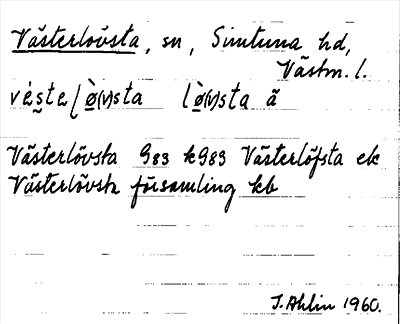 Västerlövsta, sn, Simtuna hd,
Västm. l.
vèste lø̀(v)sta lø̀(v)sta ä
Västerlövsta G83 kG83 Västerlöfsta ek
Västerlövsta församling kb
J. Ahlin 1960.